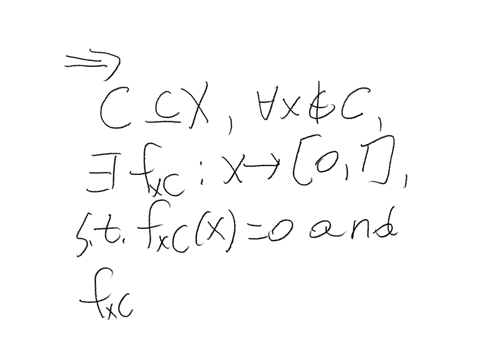 ⇒
C ⊆ X, ∀x ∉ C,
∃ f_{xC} : X → [0,1],
s.t. f_{xC}(x)=0 and
f_{xC}